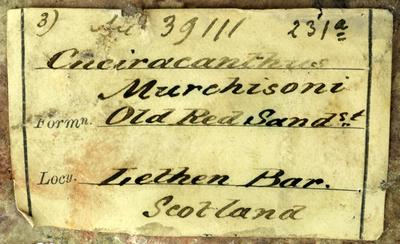 3) No. 39111 231a
Cheiracanthus
Murchisoni
Formn. Old Red Sandst
Locy. Lethen Bar.
Scotland